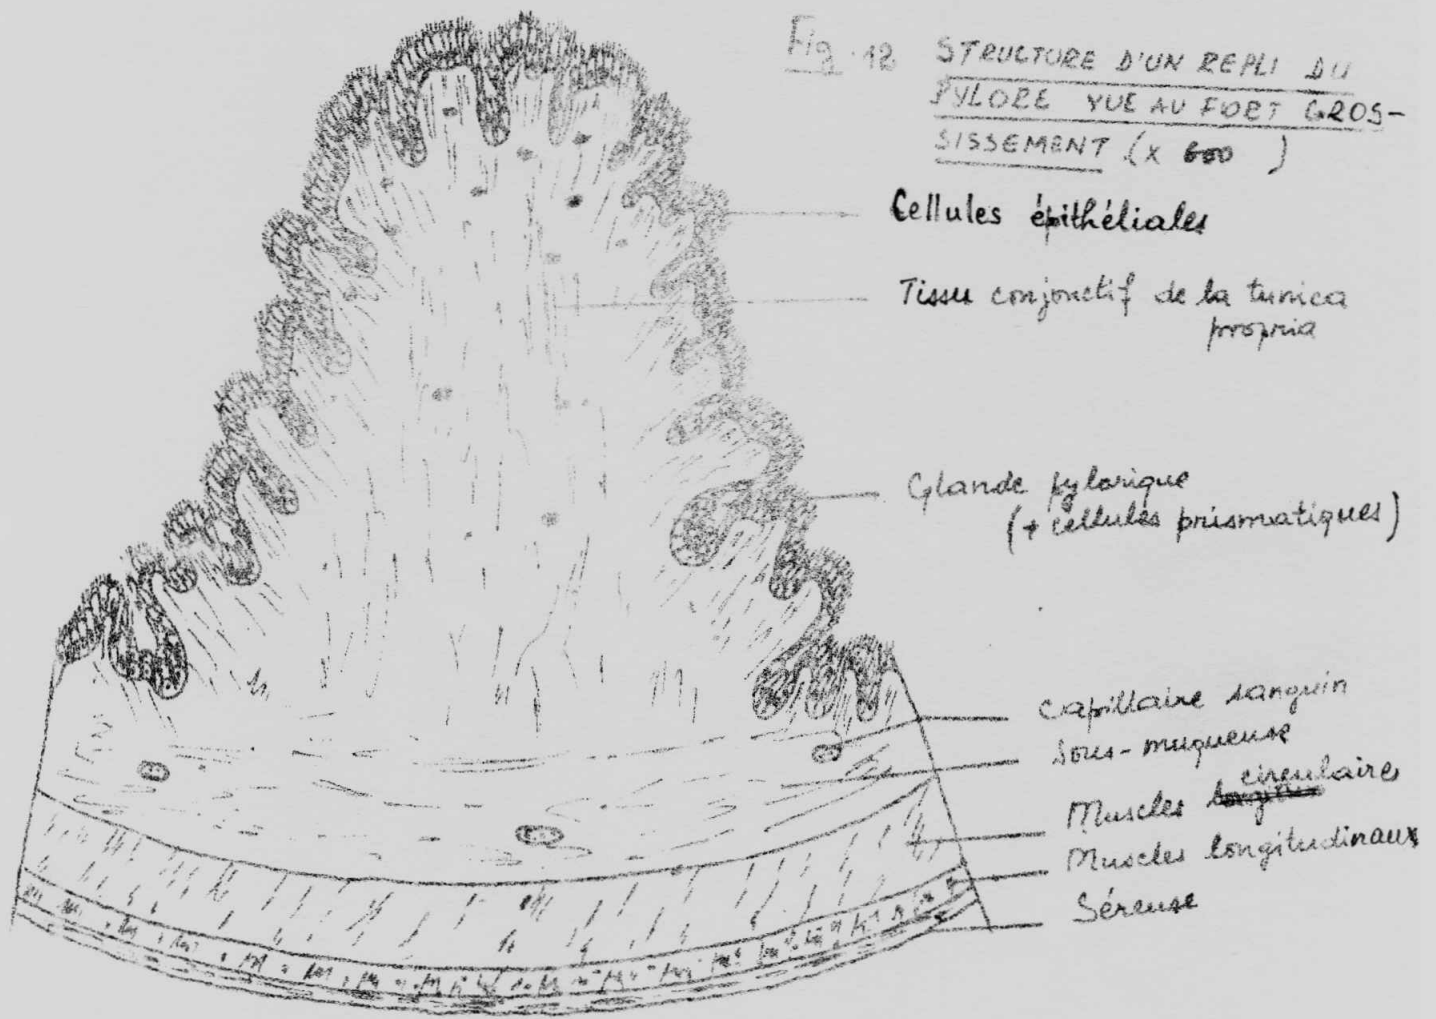 Fig. 12 STRUCTURE D'UN REPLI DU
PYLORE VUE AU FORT GROS-
SISSEMENT (X 600 )
Cellules épithéliales
Tissu conjonctif de la tunica
propria
Glande pylorique
(+ cellules prismatiques)
Capillaire sanguin
Sous-muqueuse
circulaires
Muscles
Muscles longitudinaux
Séreuse